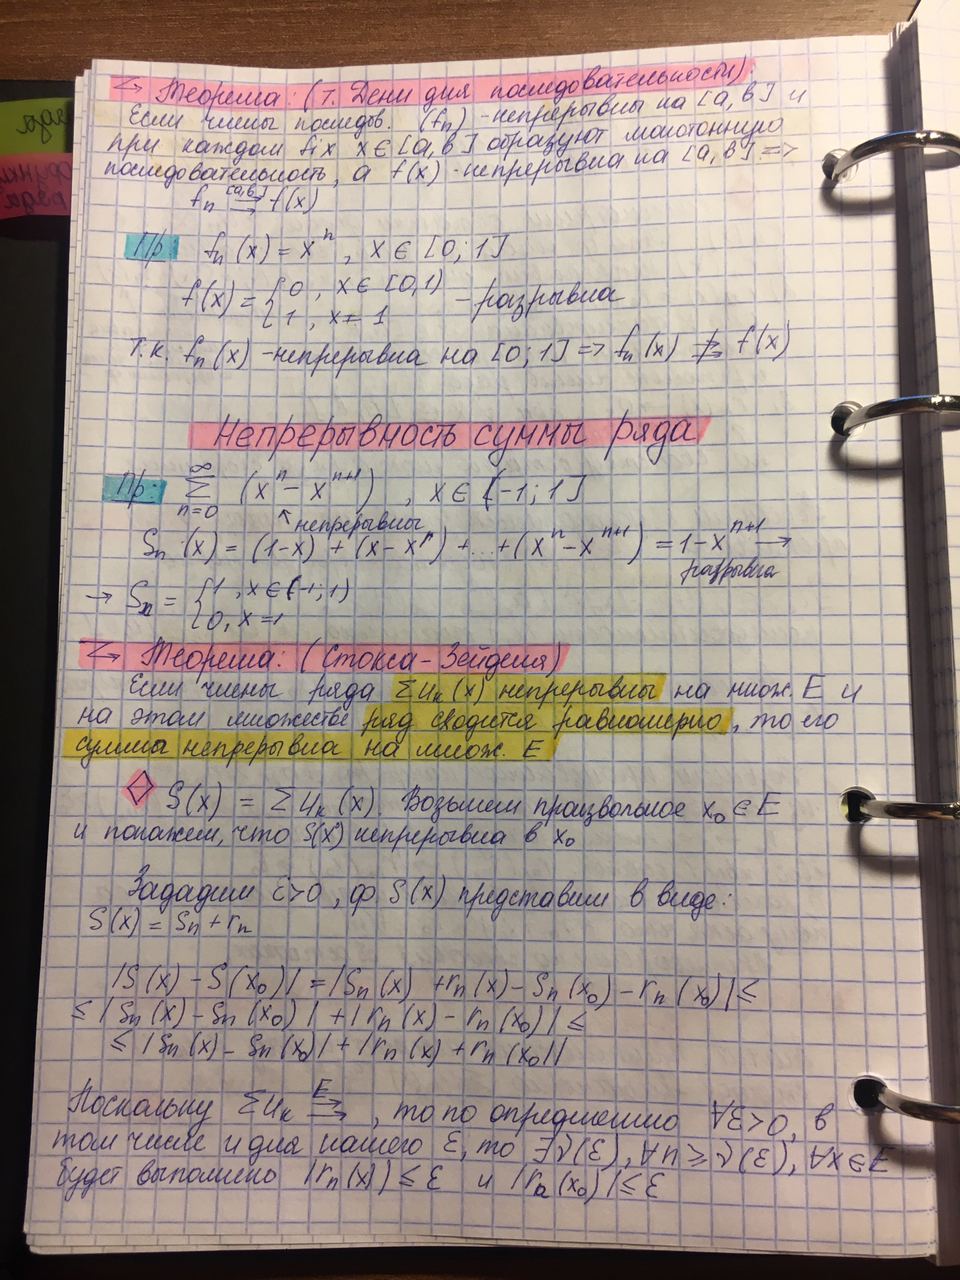 Теорема: (т. Дени для последовательности):
Если члены последов. (fn) - непрерывны на [a, b] и
при каждом fix x ∈ [a, b] образуют монотонную
последовательность, а f(x) - непрерывна на [a, b] =>
fn [a,b]⇉ f(x)
Пр: fn(x) = x^n, x ∈ [0; 1]
f(x) = { 0, x ∈ [0, 1)
1, x = 1 - разрывна
т.к. fn(x) - непрерывна на [0; 1] => fn(x) ⇉̸ f(x)
Непрерывность суммы ряда
Пр: ∞ Σ n=0 (x^n - x^n+1), x ∈ (-1; 1]
↖ непрерывны
Sn(x) = (1-x) + (x - x^n) + ... + (x^n - x^n+1) = 1 - x^n+1 →
разрывна
→ Sn = { 1, x ∈ (-1; 1)
0, x = 1
Теорема: (Стокса-Зейделя)
Если члены ряда Σuk(x) непрерывны на множ. E и
на этом множестве ряд сходится равномерно, то его
суммы непрерывна на множ. E
◇ S(x) = Σuk(x). Возьмем произвольное x0 ∈ E
и покажем, что S(x) непрерывна в x0
Зададим ε>0, ф S(x) представим в виде:
S(x) = Sn + rn
|S(x) - S(x0)| = |Sn(x) + rn(x) - Sn(x0) - rn(x0)| ≤
≤ |Sn(x) - Sn(x0)| + |rn(x) - rn(x0)| ≤
≤ |Sn(x) - Sn(x0)| + |rn(x) + rn(x0)|
Поскольку Σuk E⇉, то по определению ∀ε>0, в
том числе и для нашего ε, то ∃N(ε), ∀n ≥ N(ε), ∀x∈E
будет выполнено |rn(x)| ≤ ε и |rn(x0)| ≤ ε